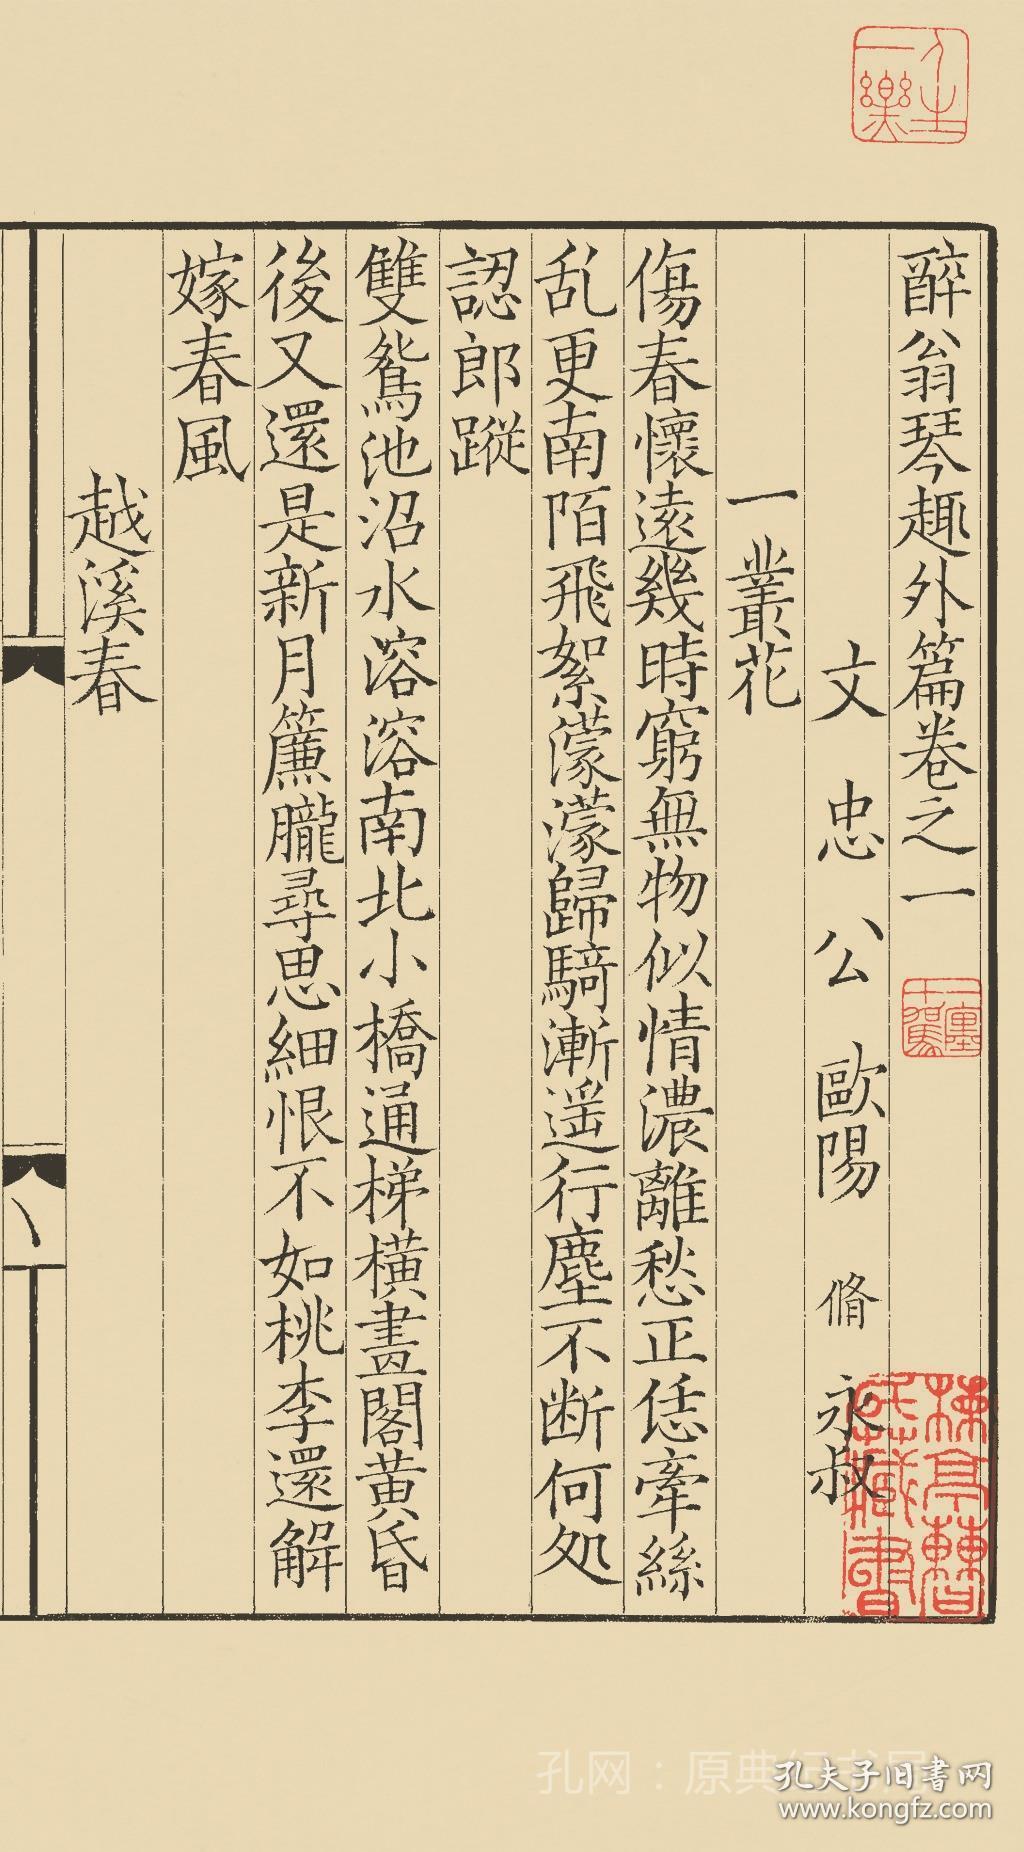 醉翁琴趣外篇卷之一
文忠公歐陽脩永叔
一叢花
傷春懷遠幾時窮無物似情濃離愁正恁牽絲
乱更南陌飛絮濛濛歸騎漸遥行塵不断何処
認郎蹤
雙鴛池沼水溶溶南北小橋通梯橫畫閣黄昏
後又還是新月簾朧尋思細恨不如桃李還解
嫁春風
越溪春
人生一樂
棟亭曹氏藏書
孔网：原典
孔夫子旧書网
www.kongfz.com